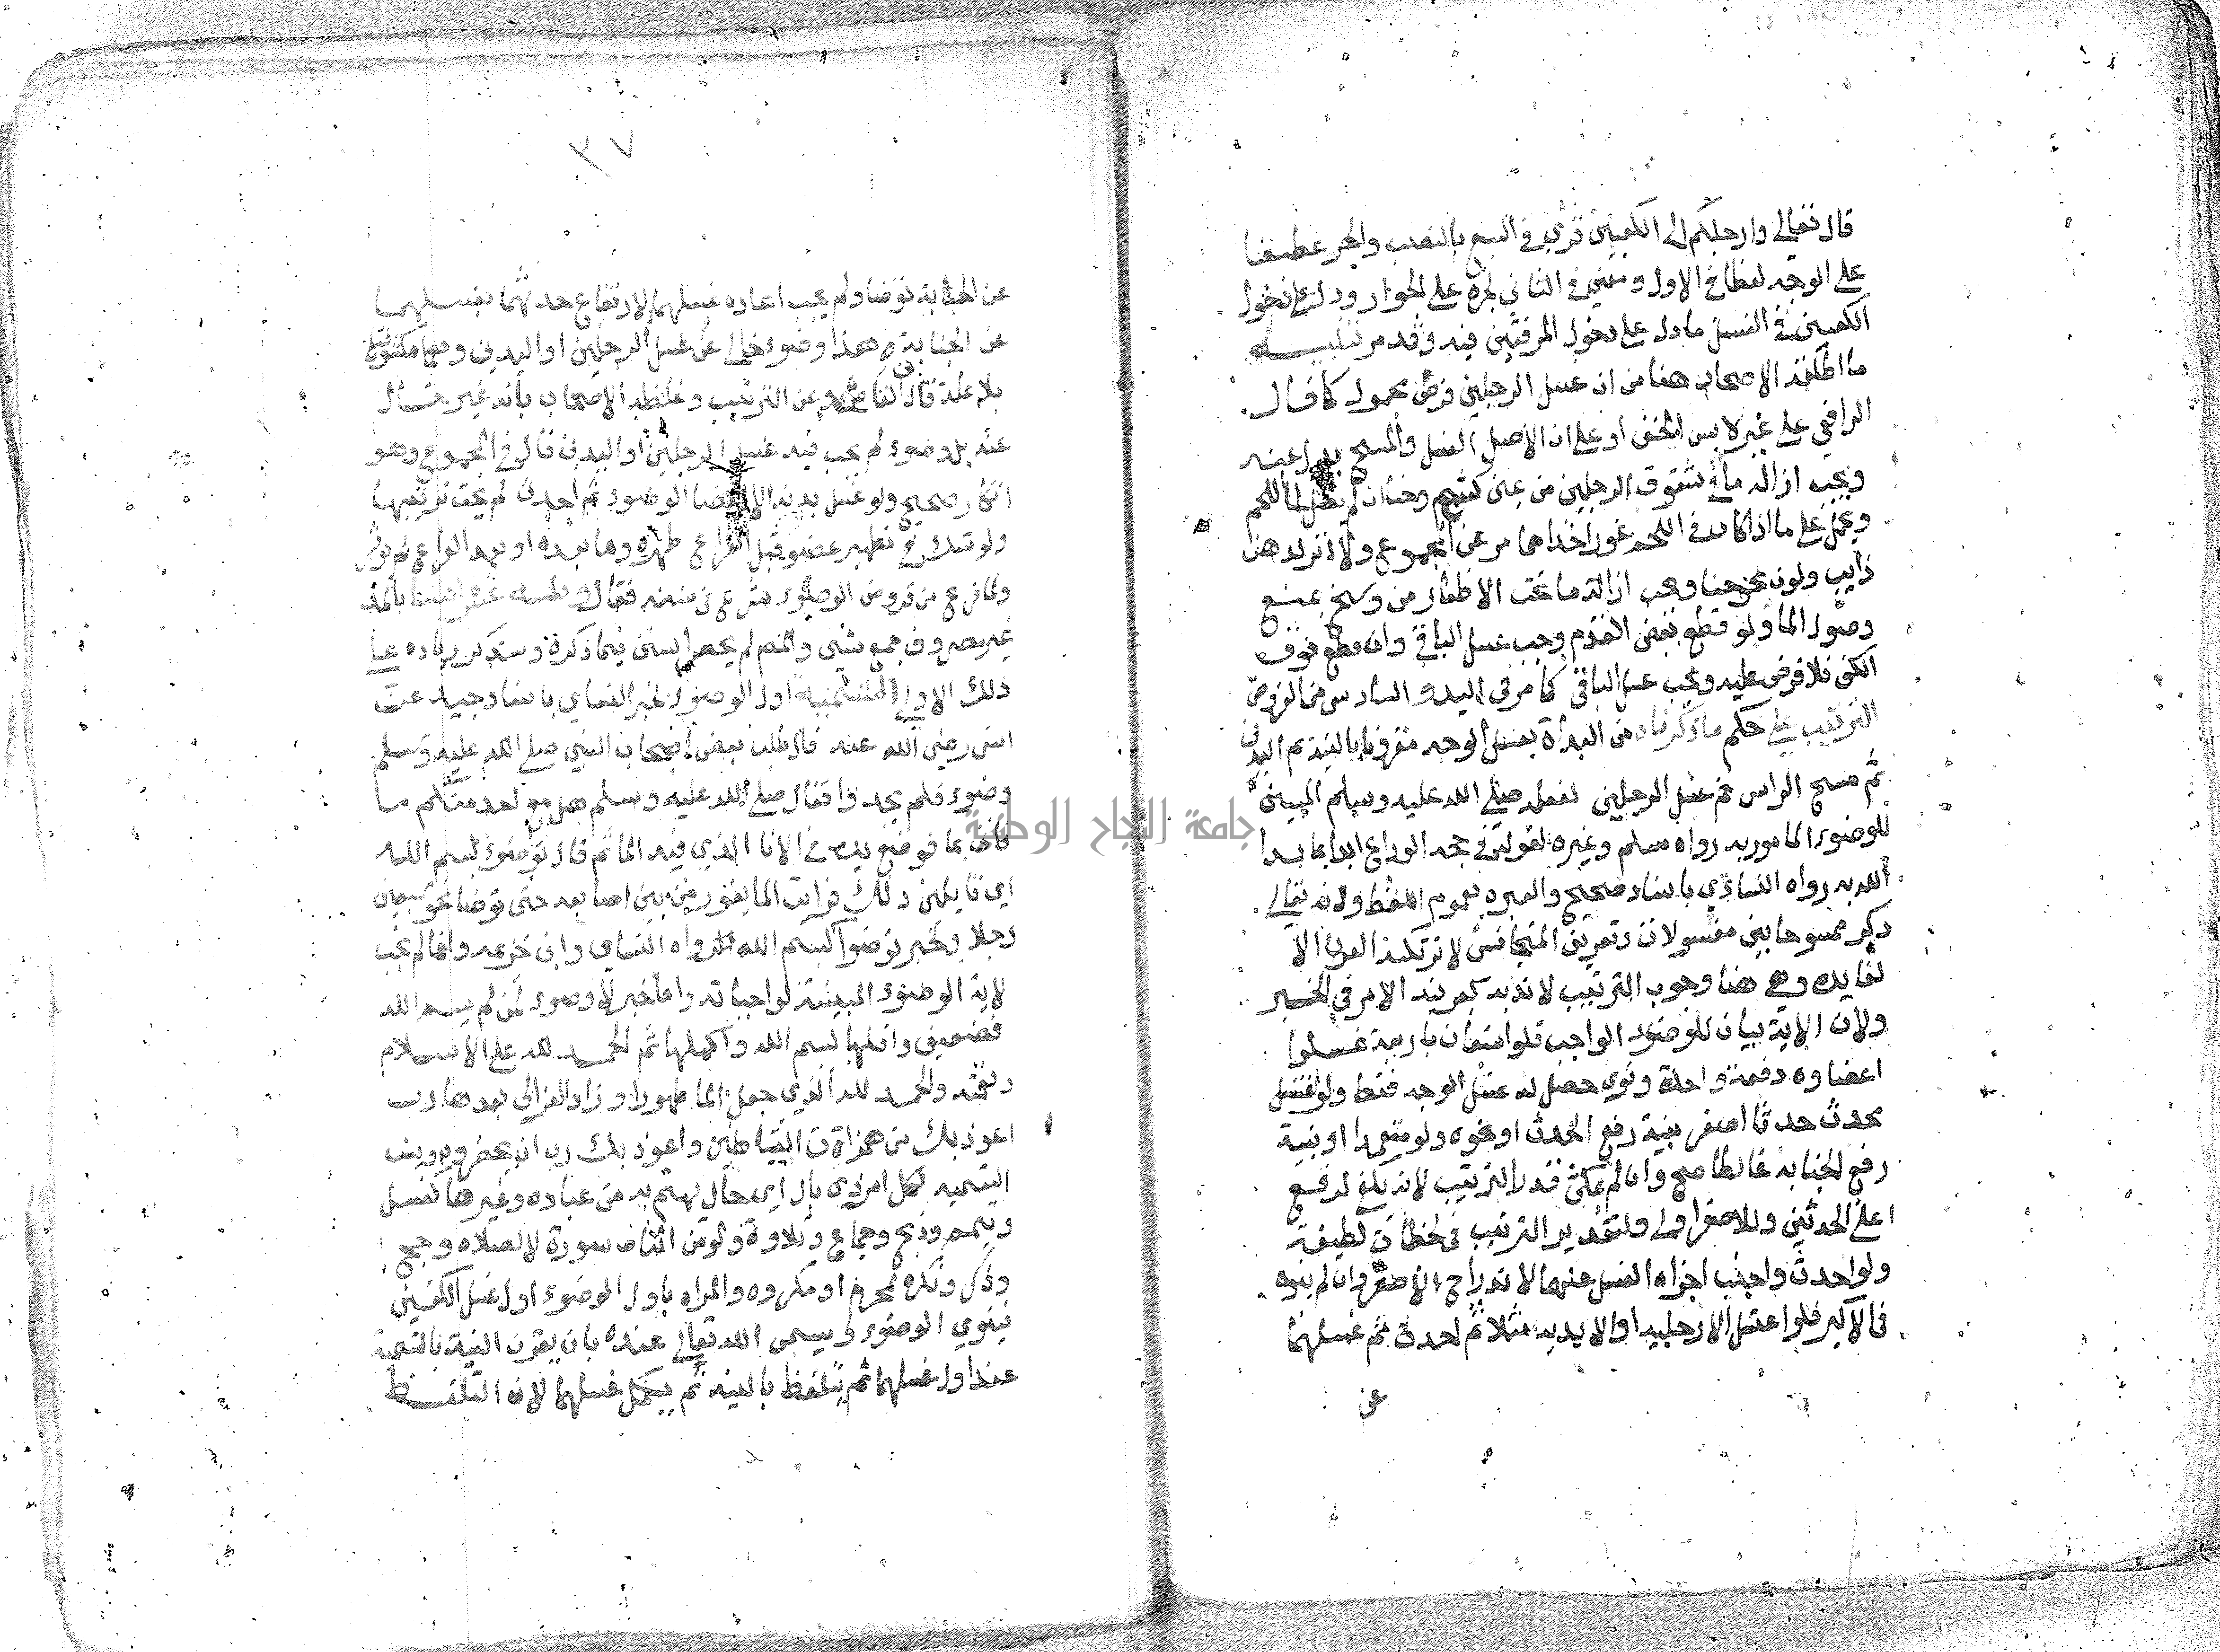 قال تعالي وارجلكم الي الكعبين قري في السبع بالنصب والجر عطفا
علي الوجه لفظا في الاول ومعني في الثاني لجره علي الجوار ودل علي دخول
الكعبين في الغسل ما دل علي دخول المرفقين فيه وقد مر تنبيه
ما اطلقه الاصحاب هنا من ان غسل الرجلين فرض محمول كما قال
الرافعي علي غير لابس الخف او علي ان الاصل الغسل والمسح بدل عنه
ويجب ازاله ما في شقوق الرجلين من عين كشمع وحنا ان لم يصل الي اللحم
ويحمل علي ما اذا كان في اللحم غور اخذا مما مر عن المجموع ولا اثر لدهن
ذايب ولون نحو حنا ويجب ازالة ما تحت الاظفار من وسخ يمنع
وصول الما ولو قطع بعض القدم وجب غسل الباقي وان قطع فوق
الكعب فلا فرض عليه ويجب غسل الباقي كما مر في اليد والسادس من الفروض
الترتيب علي حكم ما ذكرناه من البداة بغسل الوجه مقرونا بالنية ثم اليدين
ثم مسح الراس ثم غسل الرجلين لفعله صلي الله عليه وسلم المبين
للوضوء المامور به رواه مسلم وغيره لقوله في حجه الوداع ابدا بما بدا
الله به رواه النساي باسناد صحيح والعبره بعموم اللفظ ولانه تعالي
ذكر ممسوحا بين مغسولات وتفريق المتجانس لا ترتكبه العرب الا
لفايده وهي هنا وجوب الترتيب لا ندبه بقرينه الامر في الخبر
ولان الاية بيان للوضوء الواجب فلو استعان باربعة غسلوا
اعضاوه دفعة واحدة ونوي حصل له غسل الوجه فقط ولو اغتسل
محدث حدثا اصغر بنية رفع الحدث او نحوه ولو متعمدا او بنية
رفع الجنابه غالطا صح وان لم يمكث قدر الترتيب لانه يكفي لرفع
اعلي الحدثين فللاصغر اولي ولتقدير الترتيب في لحظات لطيفة
ولو احدث واجنب اجزاه الغسل عنهما لاندراج الاصغر وان لم ينوه
في الاكبر فلو اغتسل الا رجليه او الا يديه مثلا ثم احدث ثم غسلهما
عن
٣٧
عن الجنابة توضا ولم يجب اعاده غسلهما لارتفاع حدثهما بغسلهما
عن الجنابة وهذا وضوء خالي عن غسل الرجلين او اليدين وهما مكشوفتان
بلا علة قال ابن القاص وعن الترتيب وغلطه الاصحاب بانه غير خال
عنه بل وضوء لم يجب فيه غسل الرجلين او اليدين قال في المجموع وهو
انكار صحيح ولو غسل بدنه الا اعضا الوضوء ثم احدث لم يجب ترتيبها
ولو شك في تطهير عضو قبل الفراغ طهره وما بعده او بعد الفراغ لم يوثر
ولما فرغ من فروض الوضوء شرع في سننه فقال وسننه عشرة اشيا بالمد
غير مصروف جمع شي والمصنف لم يحصر السنن فيما ذكرة وسنذكر زياده علي
ذلك الاولي التسمية اول الوضوء لخبر النساي باسناد جيد عن
انس رضي الله عنه قال طلب بعض اصحاب النبي صلي الله عليه وسلم
وضوء فلم يجدوا فقال صلي الله عليه وسلم هل مع احد منكم ما
فاتي بما فوضع يده في الانا الذي فيه الما ثم قال توضوء بسم الله
اي قايلين ذلك فرايت الما يفور من بين اصابعه حتي توضا نحو سبعين
رجلا ولخبر توضوا بسم الله رواه النساي وابن خزيمه وانما لم تجب
لاية الوضوء المبينة لواجباته واما خبر لا وضوء لمن لم يسم الله
فضعيف واقلها بسم الله واكملها ثم الحمد لله علي الاسلام
ونعمته والحمد لله الذي جعل الما طهورا وزاد الغزالي بعدها رب
اعوذ بك من همزاة الشياطين واعوذ بك رب ان يحضرون ويسن
التسميه لكل امر ذي بال اي حال يهتم به من عباده وغيرها كغسل
وتيمم وذبح وجماع وتلاوة ولو من اثنا سورة لا لصلاه وحج
وذكر وتكره لمحرم او مكروه والمراد باول الوضوء اول غسل الكفين
فينوي الوضوء ويسمي الله تعالي عنده بان يقرن النية بالتسمية
عند اول غسلهما ثم يتلفظ بالنيه ثم يكمل غسلهما لان التلفظ
جامعة النجاح الوطنية